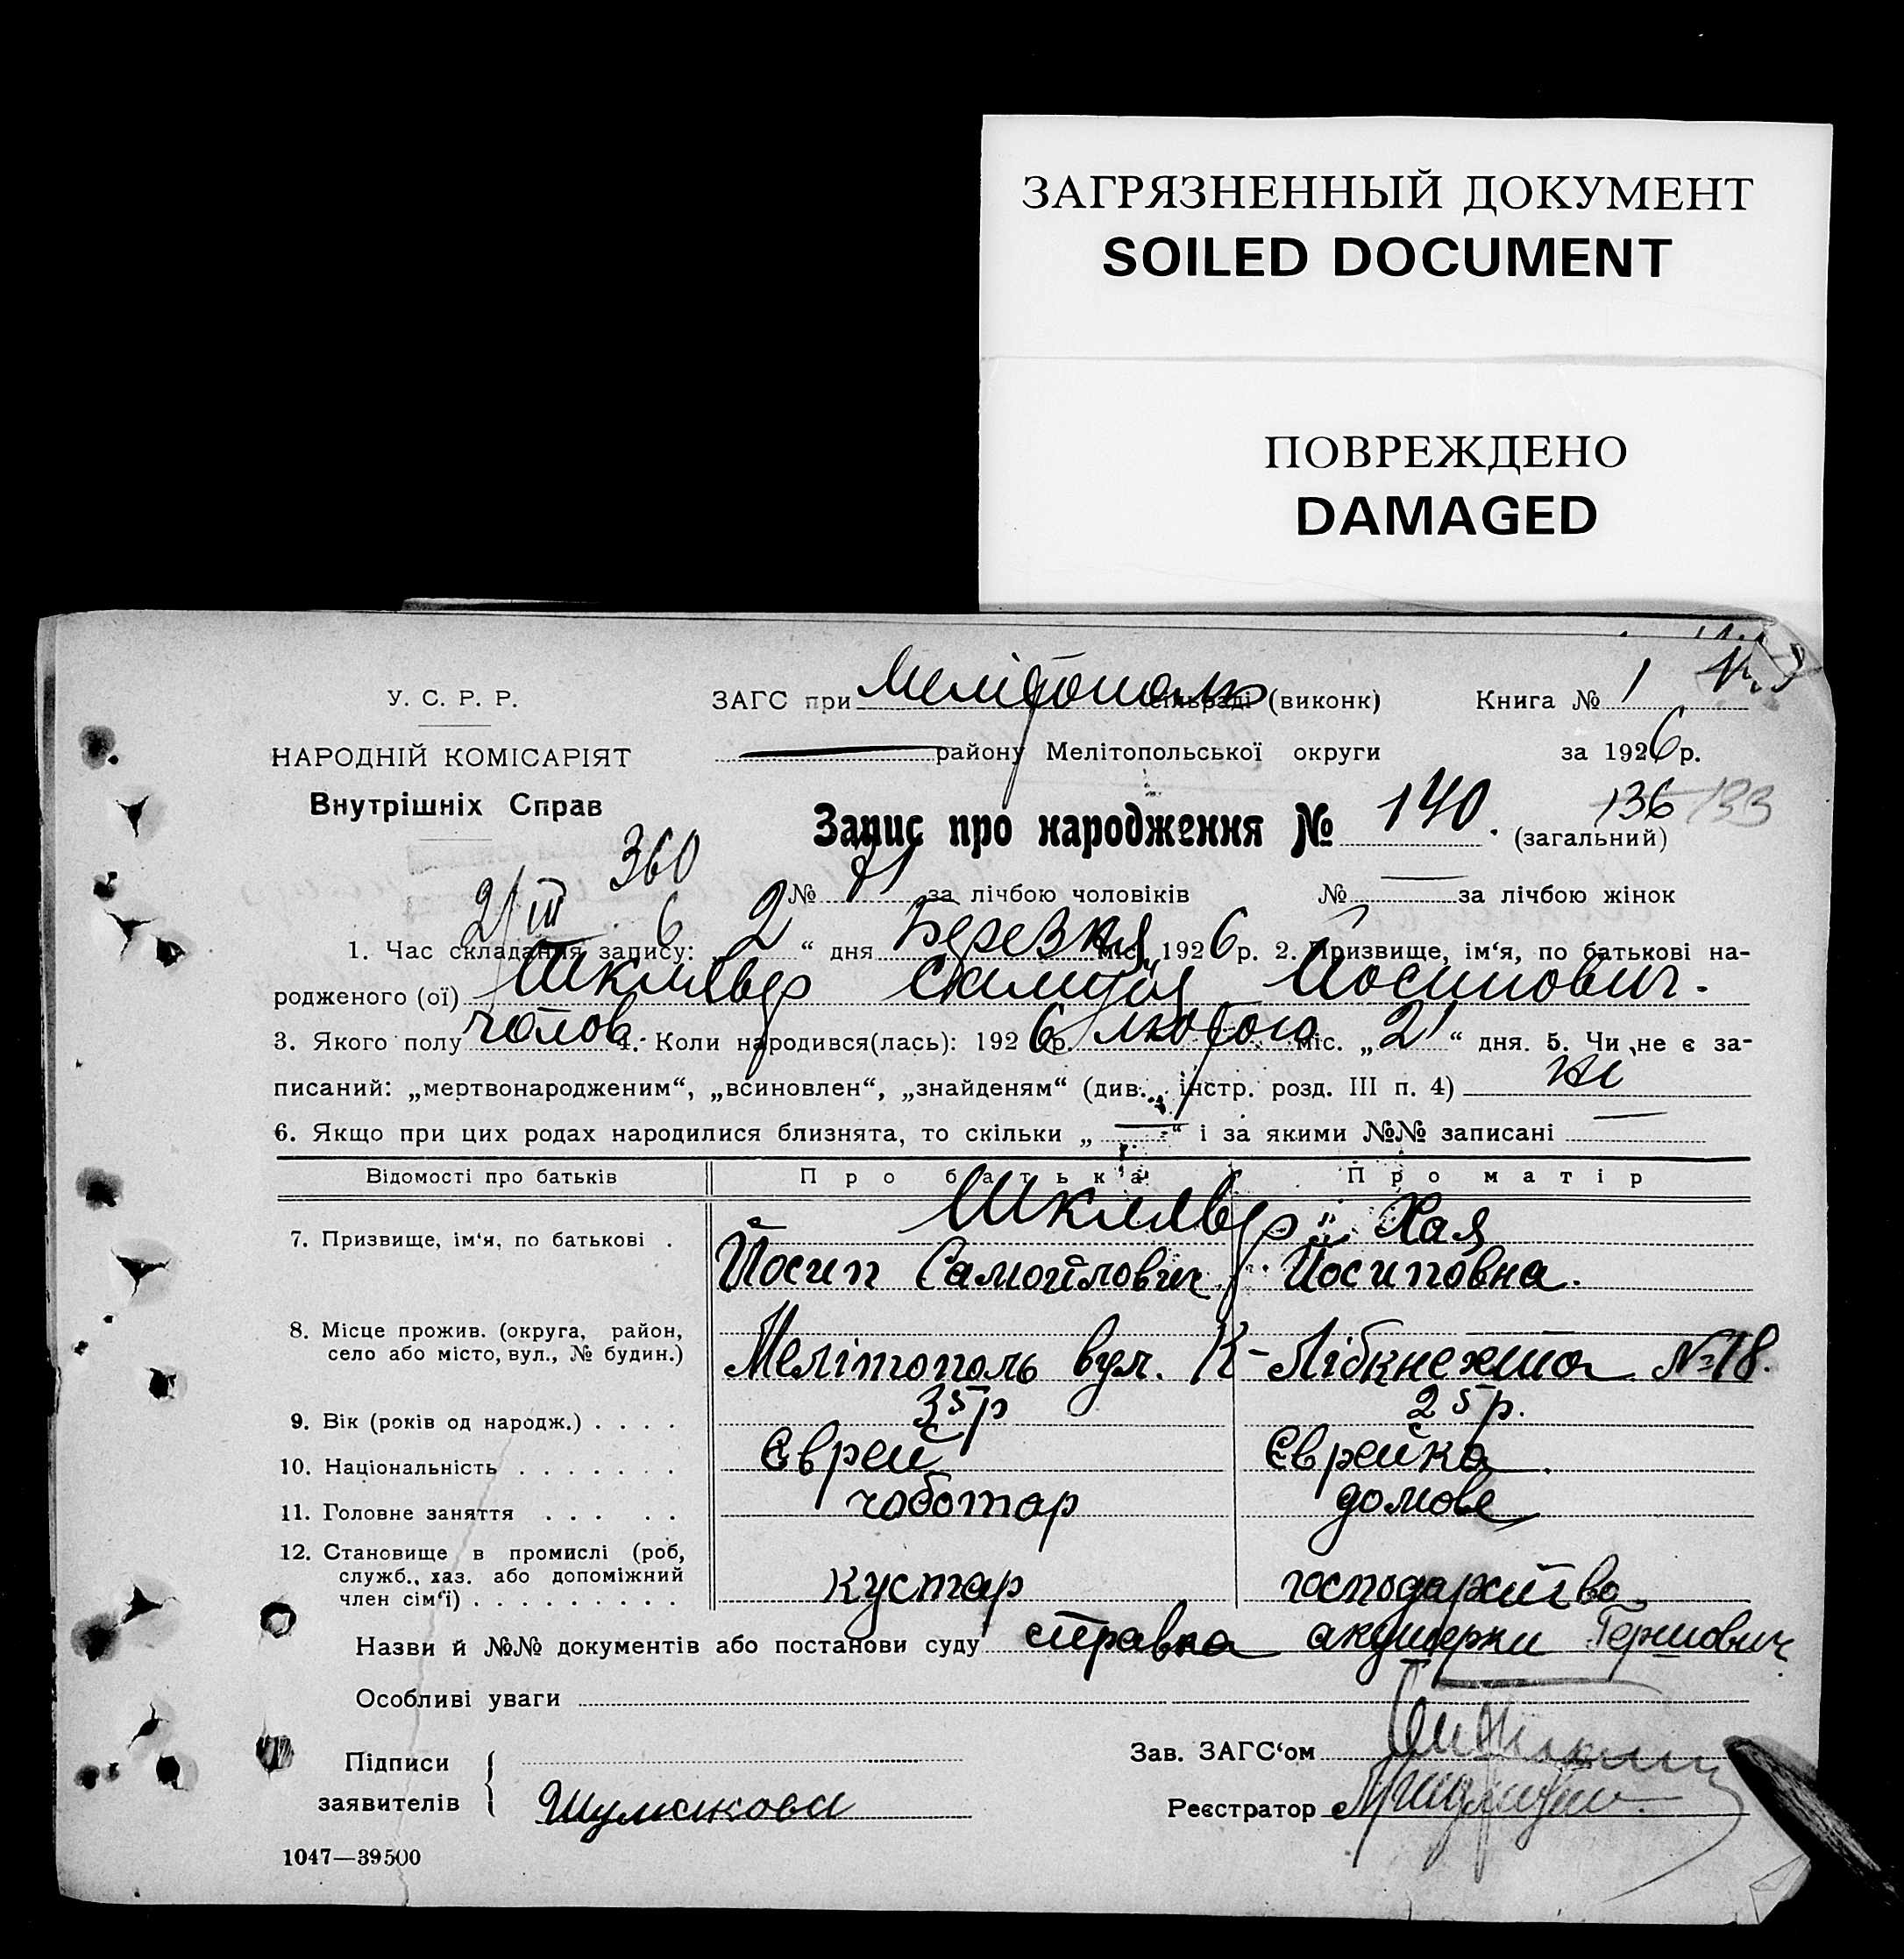 ЗАГРЯЗНЕННЫЙ ДОКУМЕНТ
SOILED DOCUMENT
ПОВРЕЖДЕНО
DAMAGED
У. С. Р. Р.
НАРОДНІЙ КОМІСАРІЯТ
Внутрішніх Справ
ЗАГС при Мелітополь сільраді (виконк) Книга № 1
району Мелітопольської округи за 1926 р.
Запис про народження № 140. 136 133
(загальний)
360
2/III 6
№ 71 за лічбою чоловіків № — за лічбою жінок
1. Час складання запису: 2 “ дня Березня міс. 1926 р. 2. Призвище, ім‘я, по батькові на-
родженого (ої) Шклявер Йосипович.
3. Якого полу чолов. 4. Коли народився(лась): 1926 р. лютого міс. „ 21 “ дня. 5. Чи не є за-
писаний: „мертвонародженим“, „всиновлен“, „знайденям“ (див. інстр. розд. III п. 4) ні
6. Якщо при цих родах народилися близнята, то скільки „ — “ і за якими №№ записані —
Відомості про батьків Про батька Про матір
7. Призвище, ім‘я, по батькові . Шклявер Хая
Йосип Самойлович Йосиповна.
8. Місце прожив. (округа, район,
село або місто, вул., № будин.) Мелітополь вул. К-Лібкнехта №18.
9. Вік (років од народж.) . . . . 35 р 25 р.
10. Національність . . . . . . . Єврей Єврейка
11. Головне заняття . . . . . чоботар домове
12. Становище в промислі (роб,
служб., хаз. або допоміжний
член сім‘ї) . . . . . . . . . кустар господарство
Назви й №№ документів або постанови суду справка акушерки Гершович
Особливі уваги
Підписи
заявителів Шумакова
Зав. ЗАГС‘ом
Реєстратор
1047—39500